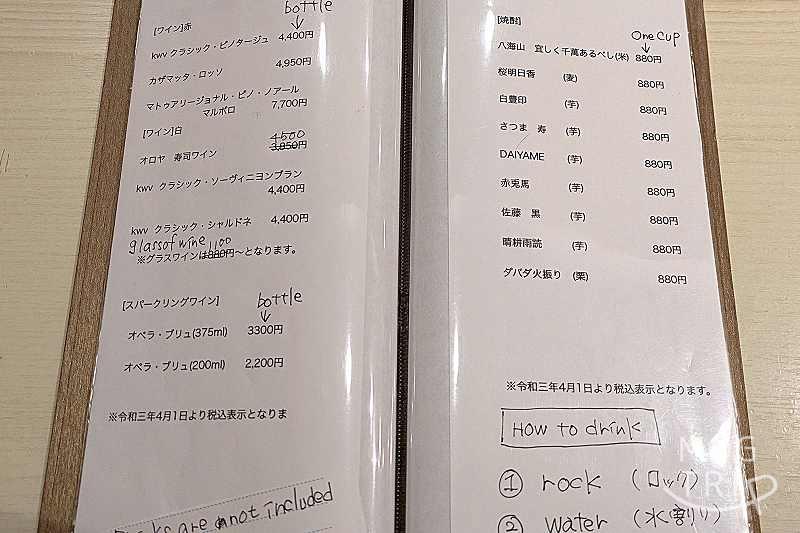 bottle
[ワイン]赤
kwv クラシック・ピノタージュ 4,400円
カザマッタ・ロッソ 4,950円
マトゥアリージョナル・ピノ・ノアール
マルボロ 7,700円
[ワイン]白
4500
オロヤ 寿司ワイン 3,850円
kwv クラシック・ソーヴィニヨンブラン
4,400円
kwv クラシック・シャルドネ 4,400円
glass of wine 1100
※グラスワインは880円〜となります。
[スパークリングワイン]
bottle
オペラ・ブリュ(375ml) 3300円
オペラ・ブリュ(200ml) 2,200円
※令和三年4月1日より税込表示となりま
are not included
[焼酎]
One cup
八海山 宜しく千萬あるべし(米) 880円
桜明日香 (麦) 880円
白豊印 (芋) 880円
さつま 寿 (芋) 880円
DAIYAME (芋) 880円
赤兎馬 (芋) 880円
佐藤 黒 (芋) 880円
晴耕雨読 (芋) 880円
ダバダ火振り (栗) 880円
※令和三年4月1日より税込表示となります。
How to drink
① rock (ロック)
② water (水割り)
MOG
TRIP